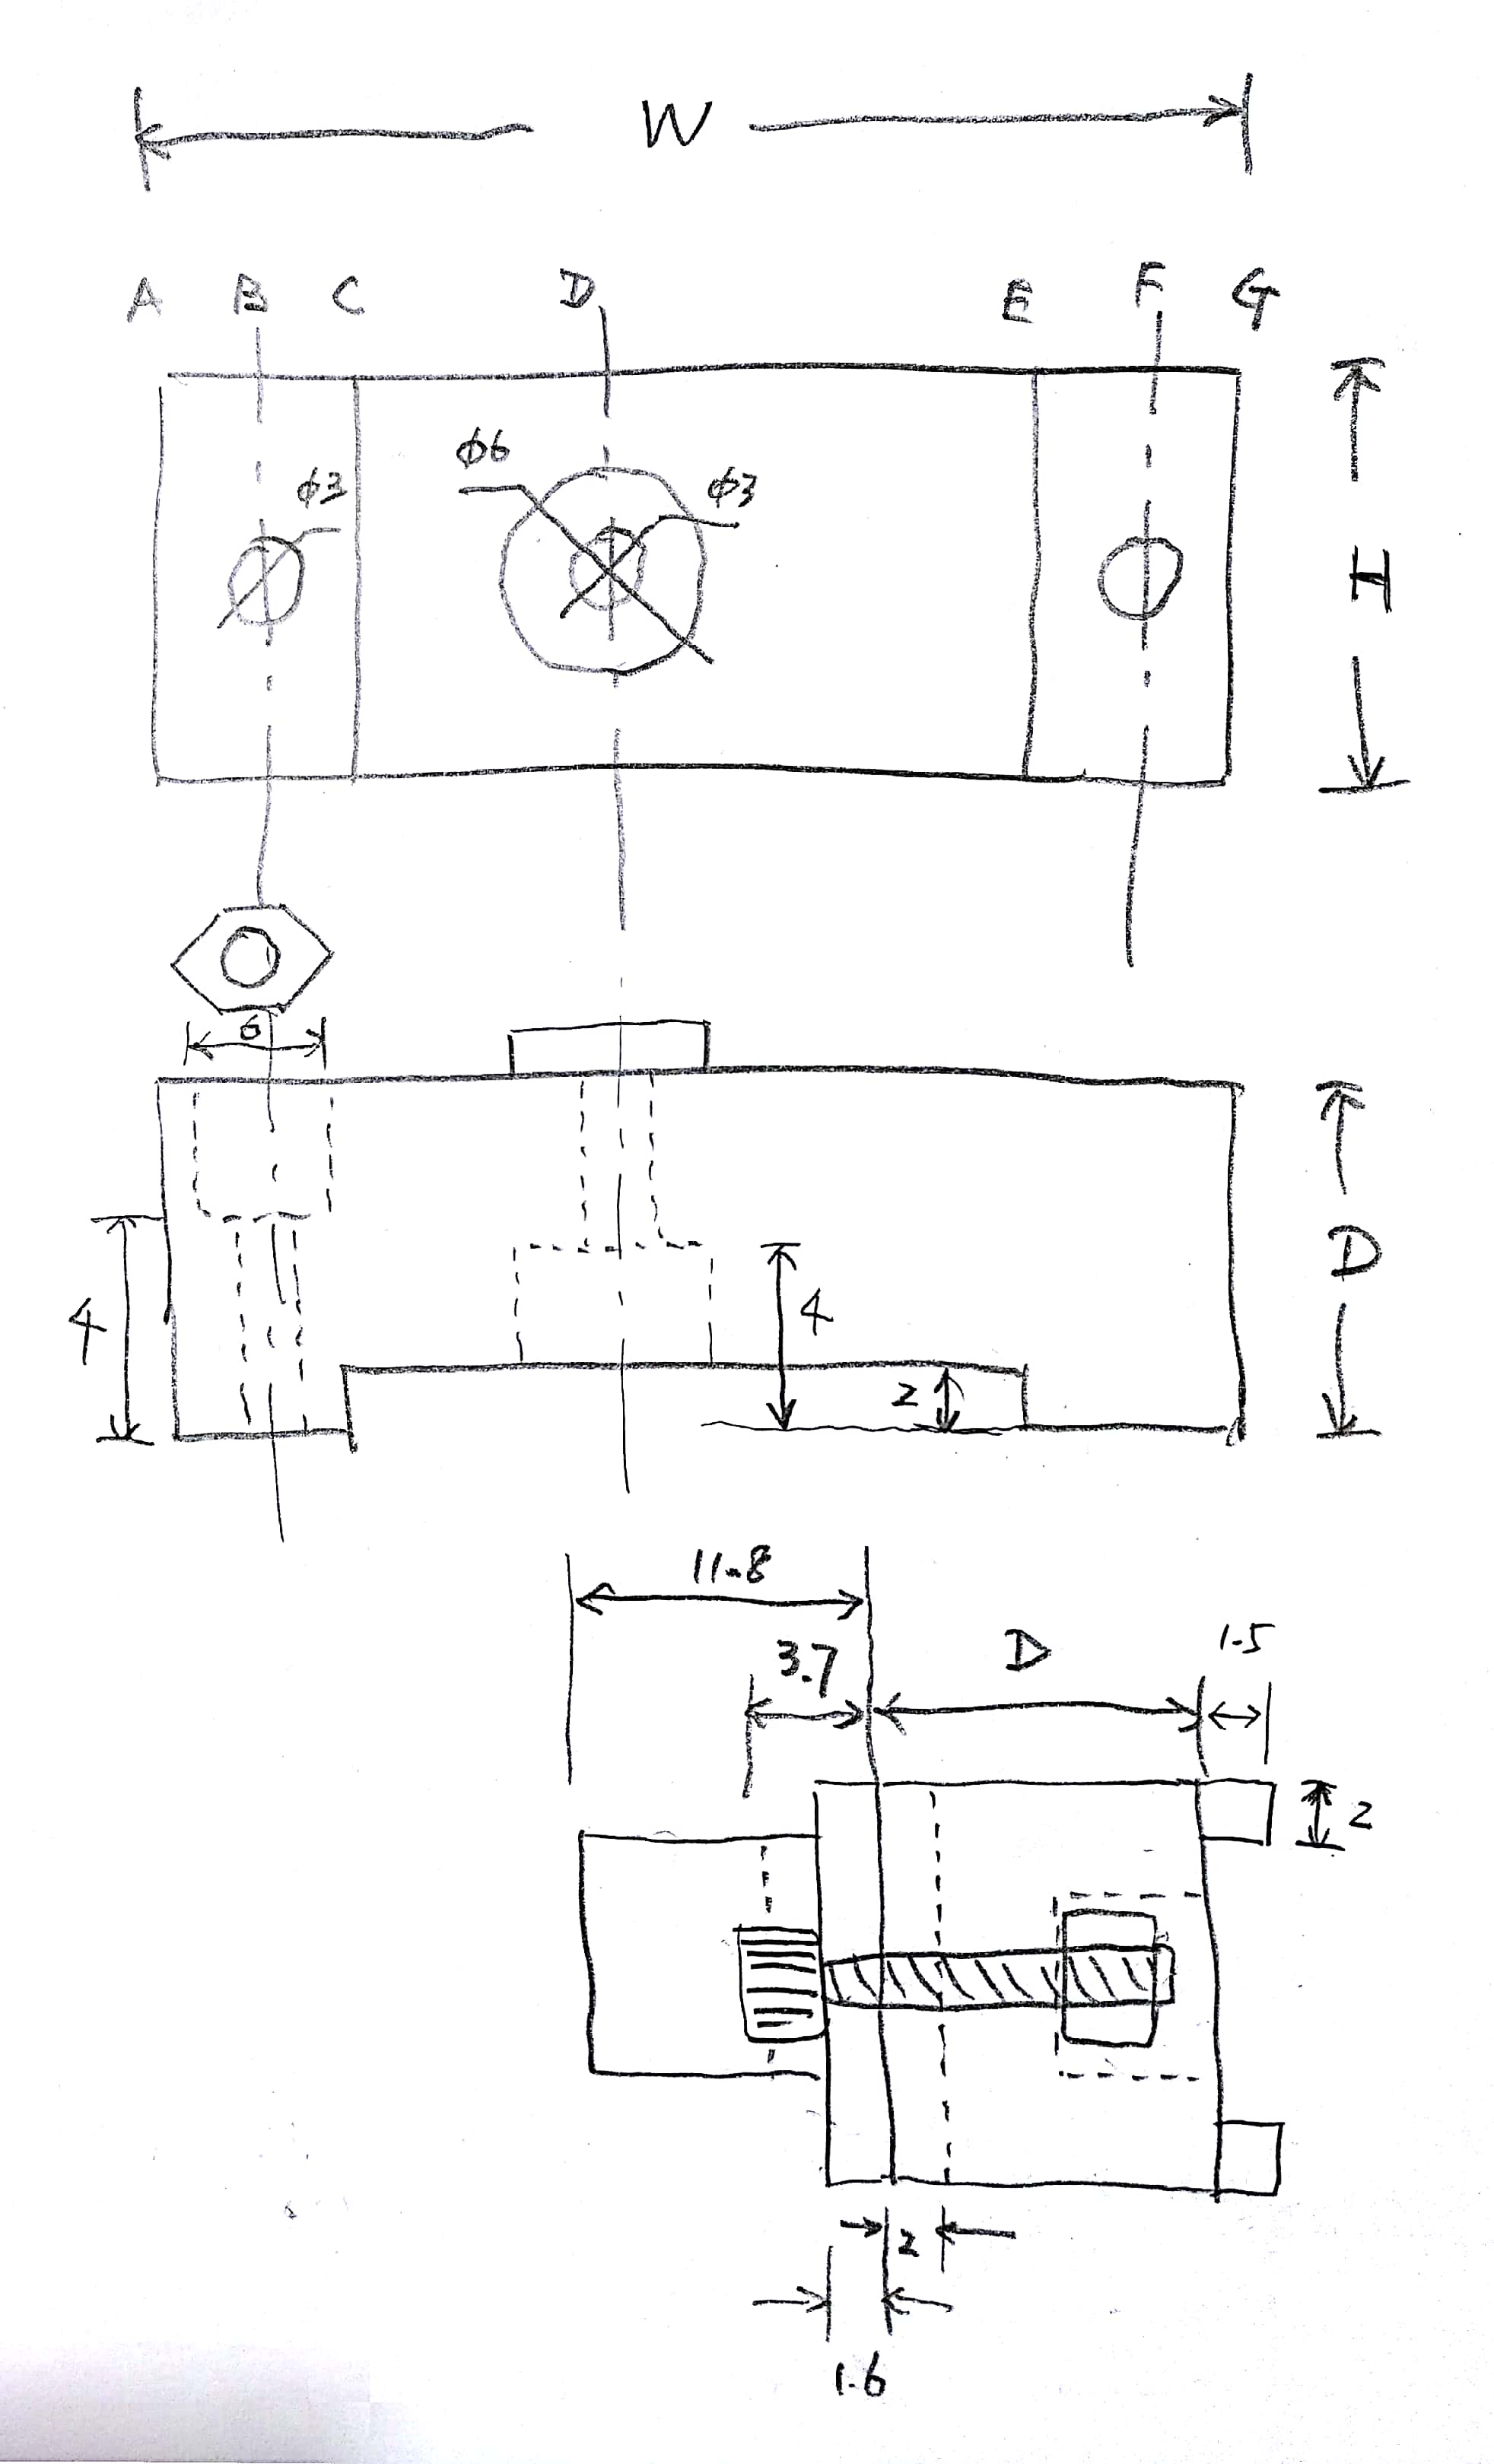 W
A B C D E F G
φ6
φ3
φ3
H
6
4
4
2
D
11.8
3.7
D
1.5
2
2
1.6